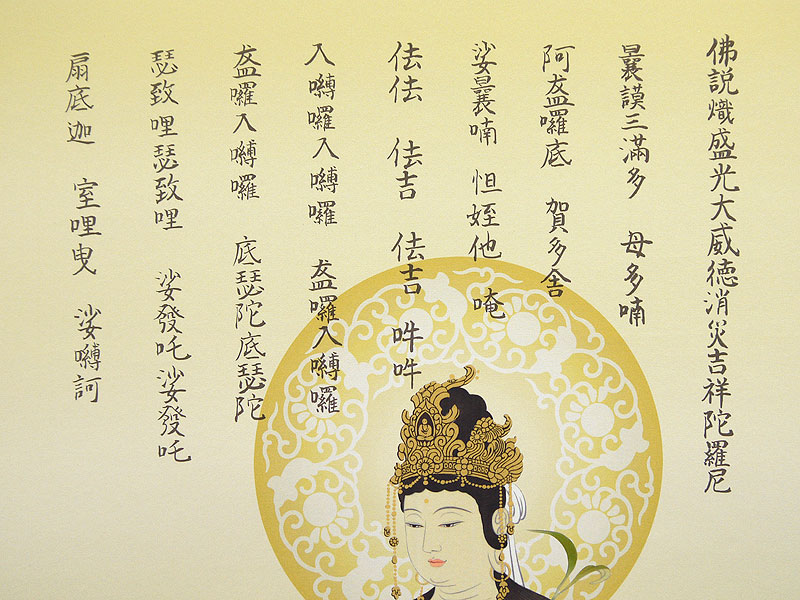 佛説熾盛光大威徳消災吉祥陀羅尼
曩謨三滿多 母多喃
阿盋囉底 賀多舎
娑曩喃 怛姪他 唵
佉佉 佉吉 佉吉 吽吽
入嚩囉入嚩囉 盋囉入嚩囉
盋囉入嚩囉 底瑟陀底瑟陀
瑟致哩瑟致哩 娑發吒娑發吒
扇底迦 室哩曳 娑嚩訶